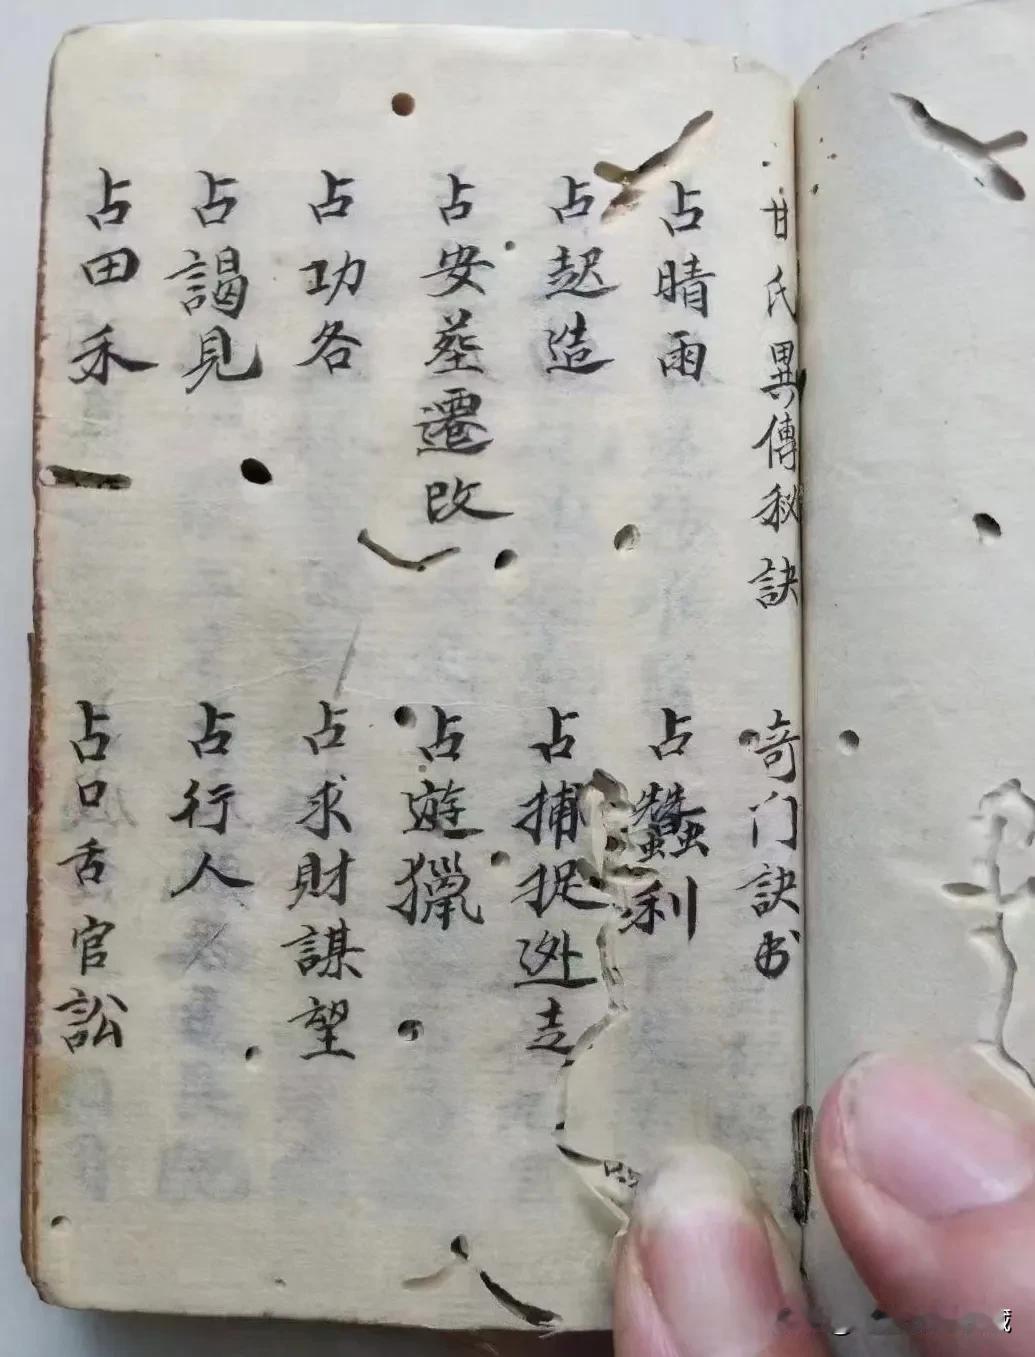 甘氏異傳秘訣
奇门訣书
占晴雨
占蠶利
占起造
占捕捉迯走
占安葬遷改
占遊獵
占功名
占求財謀望
占謁見
占行人
占田禾
占口舌官訟